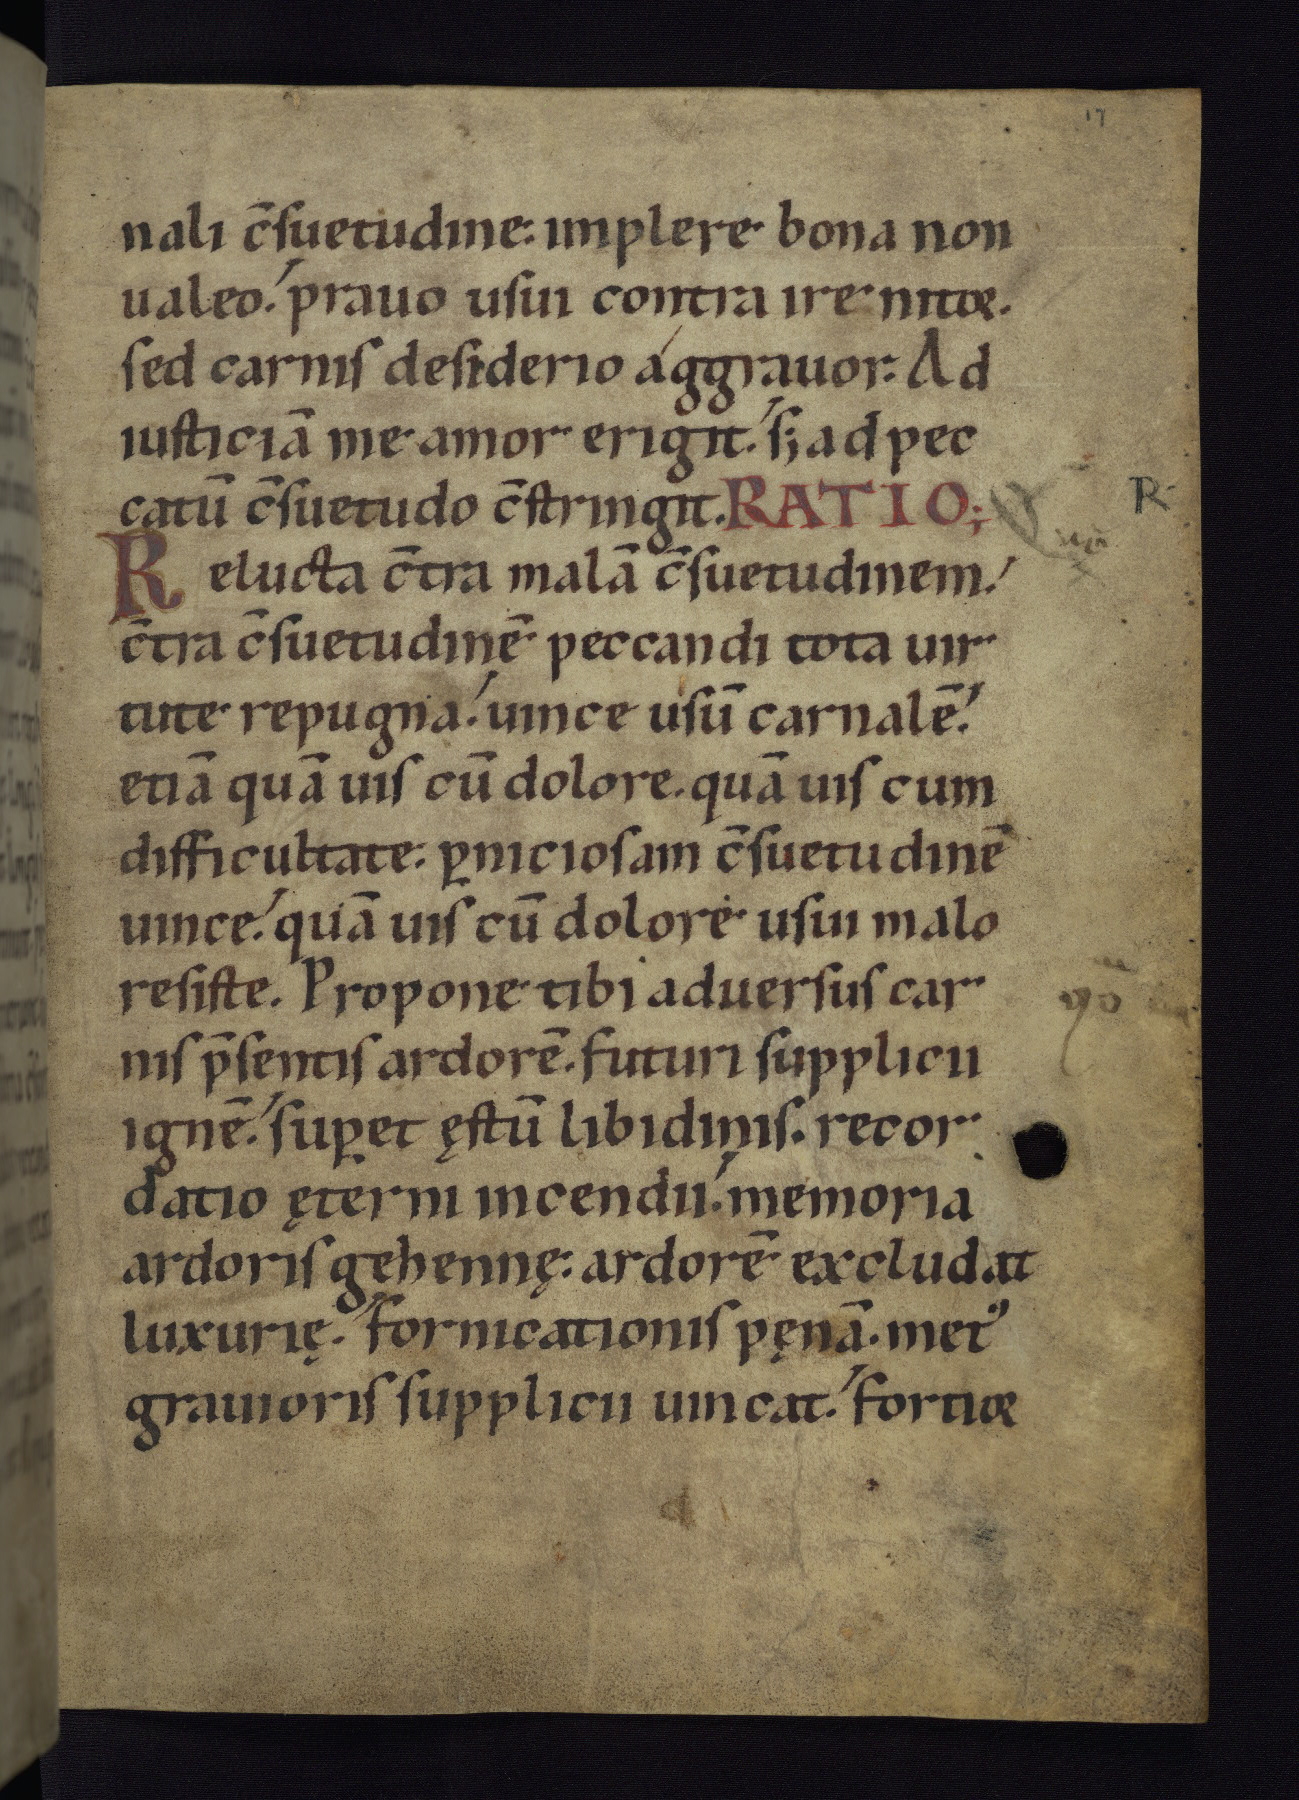 17
nali c̄suetudine: implere bona non
ualeo. prauo usui contra ire nitor.
sed carnis desiderio aggrauor: Ad
iusticiā me amor erigit. s; ad pec
catū c̄suetudo c̄stringit. RATIO; R
Relucta c̄tra malā c̄suetudinem.
c̄tra c̄suetudinē peccandi tota uir
tute repugna. uince usū carnalē.
etiā quā uis cū dolore. quā uis cum
difficultate: ꝑniciosam c̄suetudinē
uince. quā uis cū dolore usui malo
resiste. Propone tibi aduersus car
nis p̄sentis ardorē. futuri supplicii
ignē. suꝑet ęstū libidinis. recor
datio ęterni incendii. memoria
ardoris gehennę: ardorē excludat
luxurię. fornicationis pęnā. metꝰ
grauioris supplicii uincat. fortior